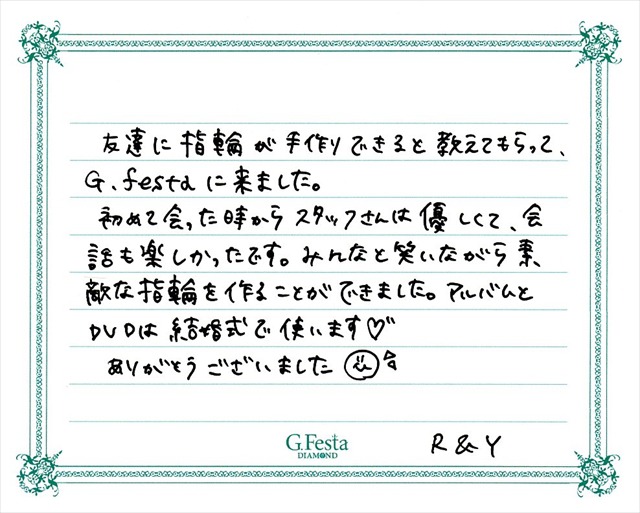 友達に指輪が手作りできると教えてもらって、
G.festaに来ました。
初めて会った時からスタッフさんは優しくて、会
話も楽しかったです。みんなと笑いながら素
敵な指輪を作ることができました。アルバムと
DVDは結婚式で使います♡
ありがとうございました
G.Festa
DIAMOND
R & Y